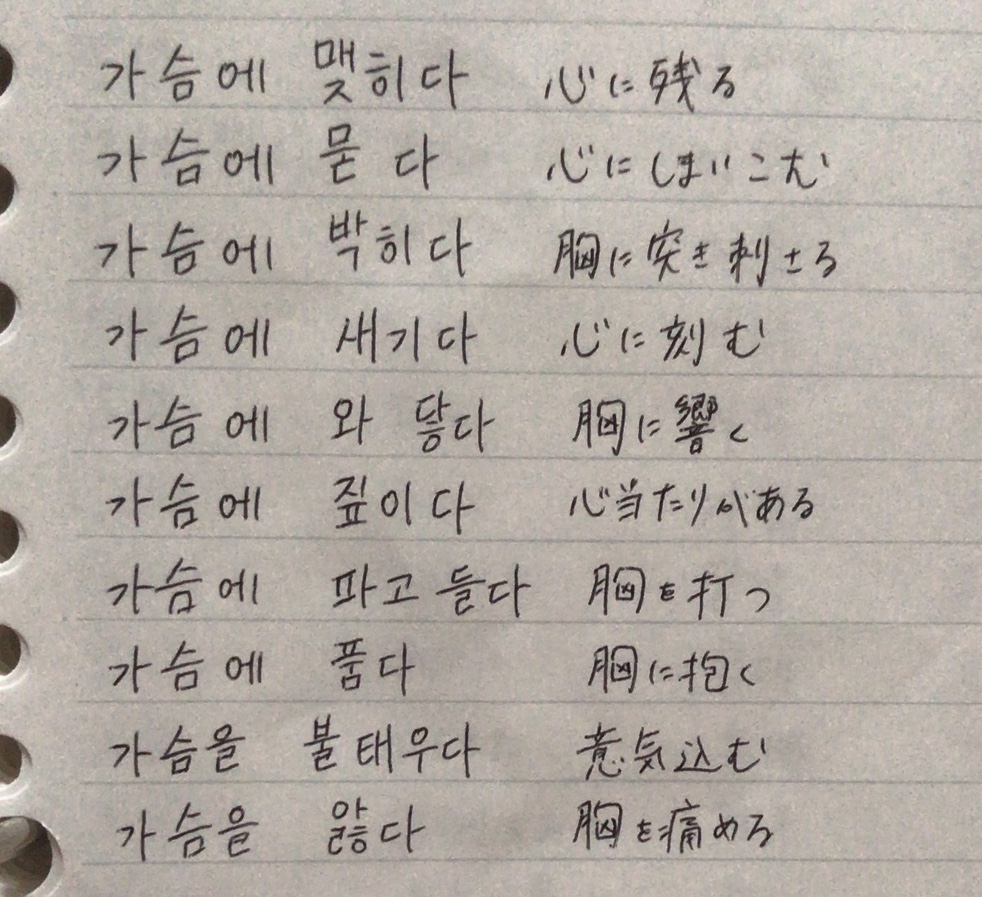 가슴에 맺히다 心に残る
가슴에 묻다 心にしまいこむ
가슴에 박히다 胸に突き刺さる
가슴에 새기다 心に刻む
가슴에 와 닿다 胸に響く
가슴에 짚이다 心当たりがある
가슴에 파고 들다 胸を打つ
가슴에 품다 胸に抱く
가슴을 불태우다 意気込む
가슴을 앓다 胸を痛める